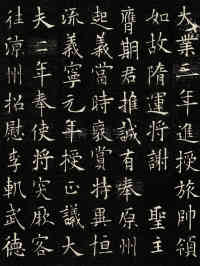 大業三年進授旅帥領
如故隋運將謝 聖主
膺期君推誠有奉原州
起義當時褒賞特異恒
流義寧元年授正議大
夫二年奉使將突厥客
往涼州招慰李軌武德